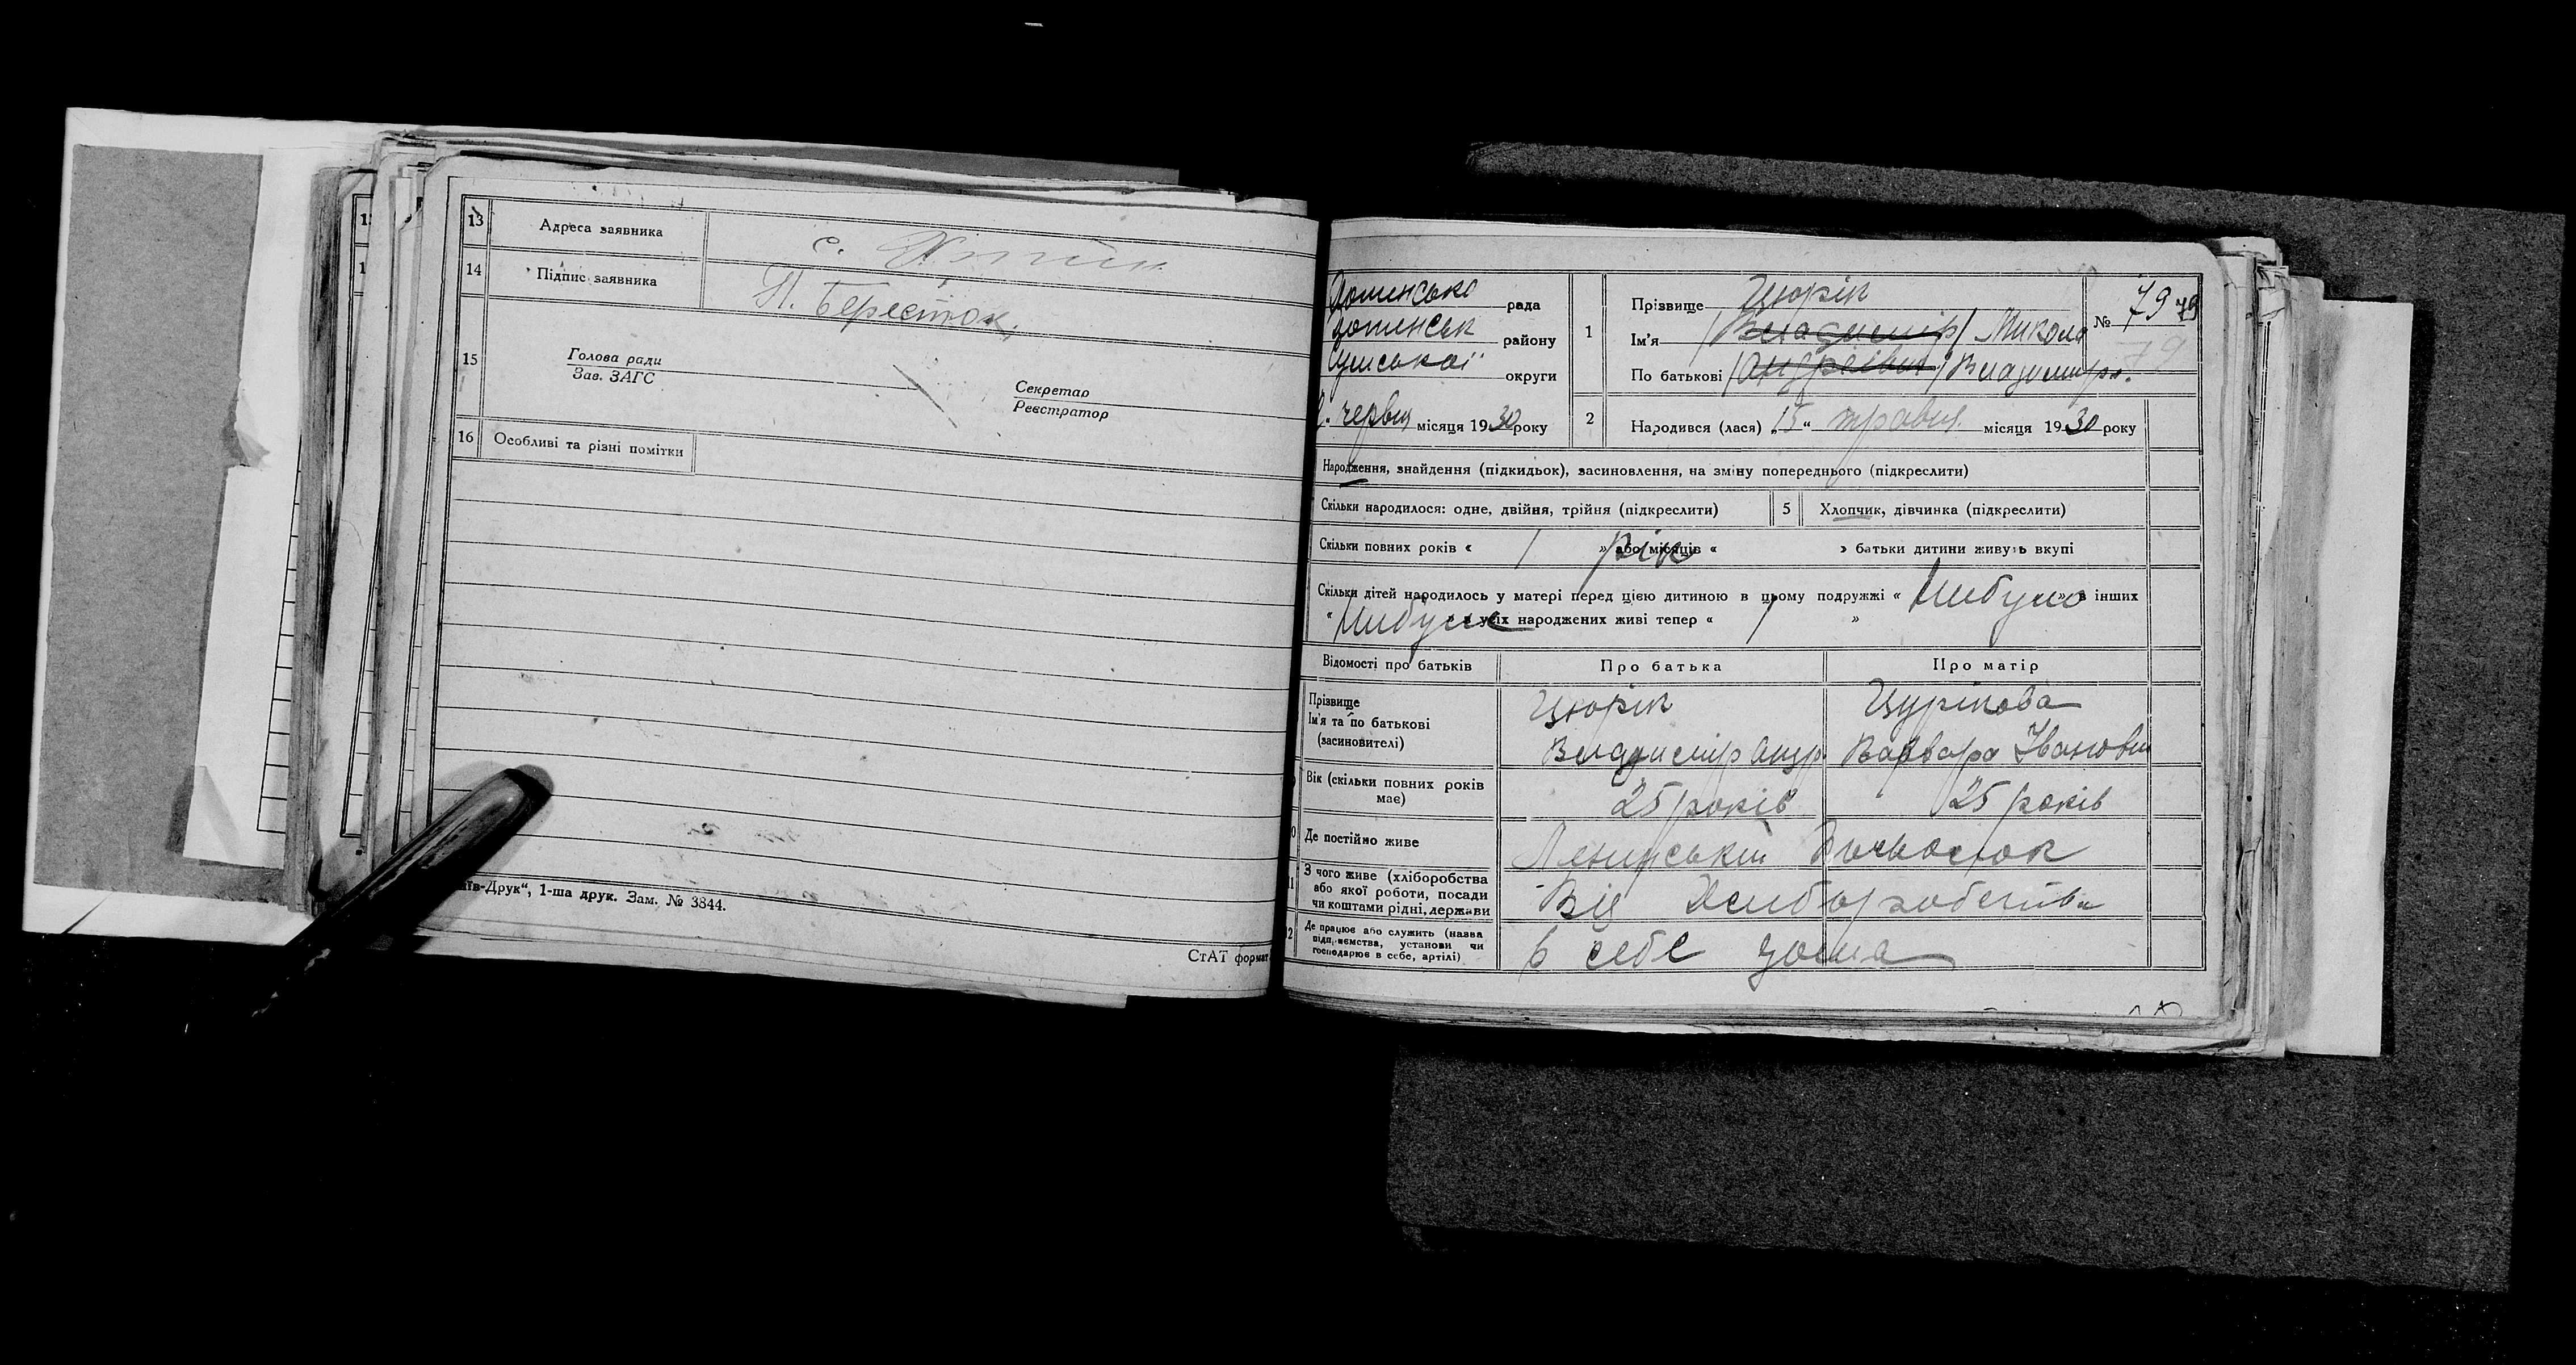 13 Адреса заявника с. Хотін
14 Підпис заявника П. Бересток
15 Голова ради
Зав. ЗАГС
Секретар
Реєстратор
16 Особливі та різні помітки
їв-Друк“, 1-ша друк. Зам. № 3844.
СтАТ формат
Хотинська рада
Хотинськ району
Сумської округи
червня місяця 1930 року
1 Прізвище Цюрік
Ім'я /Владимір/ Микола
По батькові /Андреівич/ Владимір.
№ 79 79
79
2 Народився (лася) „15“ травня місяця 1930 року
Народження, знайдення (підкидьок), засиновлення, на зміну попереднього (підкреслити)
Скільки народилося: одне, двійня, трійня (підкреслити)
5 Хлопчик, дівчинка (підкреслити)
Скільки повних років « 1 рік » або місяців « » батьки дитини живуть вкупі
Скільки дітей народилось у матері перед цією дитиною в цьому подружжі « Нибуло » в інших
« Нибуло з усіх народжених живі тепер « 1 »
Відомості про батьків Про батька Про матір
Прізвище Цюрік Цурікова
Ім'я та по батькові
(засиновителі) Владимир Андр. Варвара Івановн
Вік (скільки повних років
має) 25 років 25 років
Де постійно живе
З чого живе (хліборобства
або якої роботи, посади
чи коштами рідні, держави Від Хлиборобства
12 Де працює або служить (назва
підприємства, установи чи
господарює в себе, артілі) в себе дома